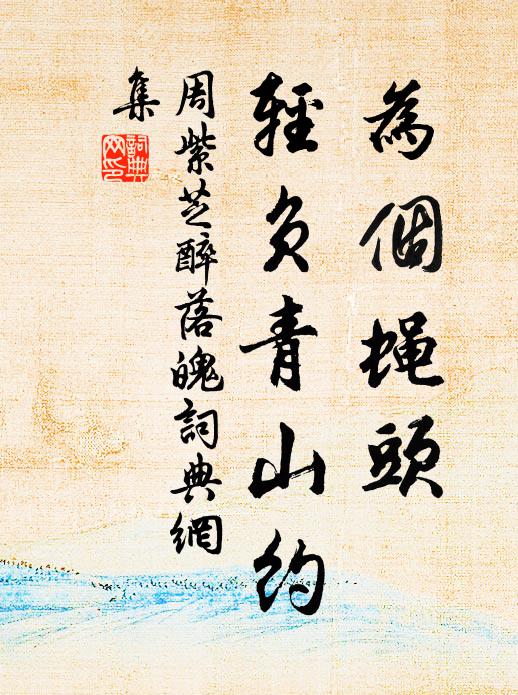 為個蝇頭
輕負青山約
周紫芝醉落魄詞典網
集
詞典
網印